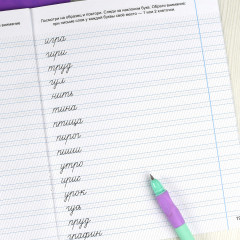 Посмотри на образец и повтори. Следи за наклоном букв. Обрати внимание:
при письме слов у каждой буквы своё место — 1 или 2 клеточки
внимание:
игра
гири
труд
гул
нить
тина
птица
пирог
пиши
утро
ирис
урок
гуа
пруд
графин